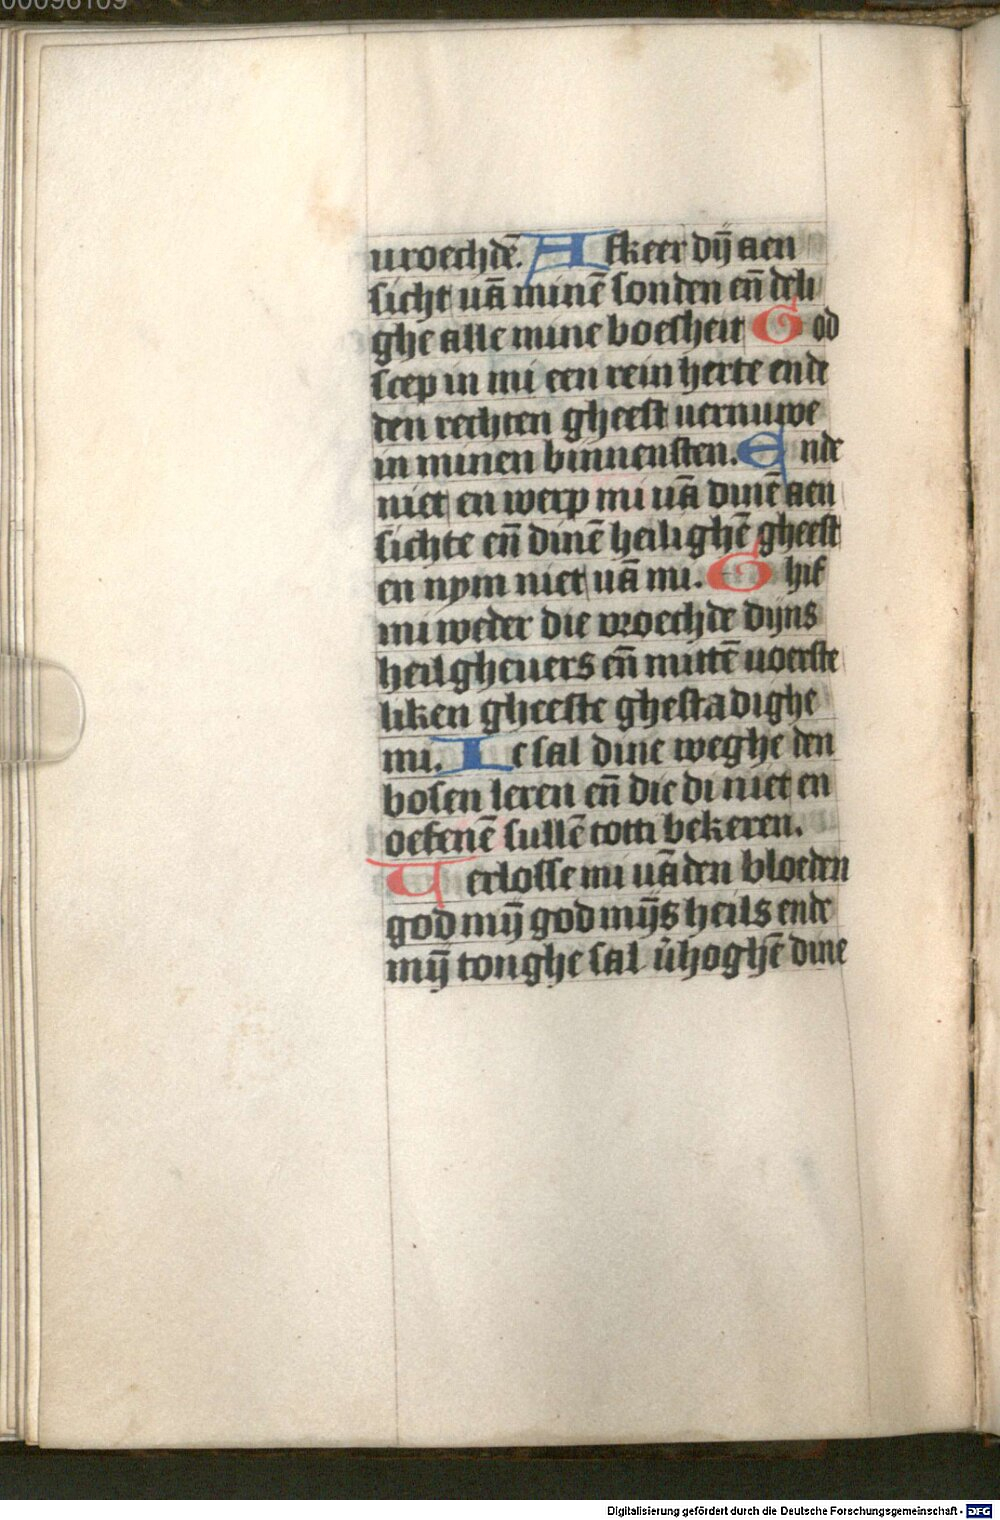 00098109
uroechdē. Afkeer dyn̄ aen
sicht uā minē sonden en̄ deli
ghe alle mine boesheit God
scep in mi een rein herte ende
den rechten gheest uernuwe
in minen binnensten. Ende
niet en werp mi uā dinē aen
sichte en̄ dinē heilighē gheest
en nym niet uā mi. Ghif
mi weder die vroechde dijns
heilgheuers en̄ mittē uoerste
liken gheeste ghestadighe
mi. Ic sal dine weghe den
bosen leren en̄ die di niet en
oefenē sullē totti bekeren.
Uerlosse mi uā den bloeden
god myn̄ god myn̄s heils ende
myn̄ tonghe sal u̇hoghē dine
Digitalisierung gefördert durch die Deutsche Forschungsgemeinschaft - DFG